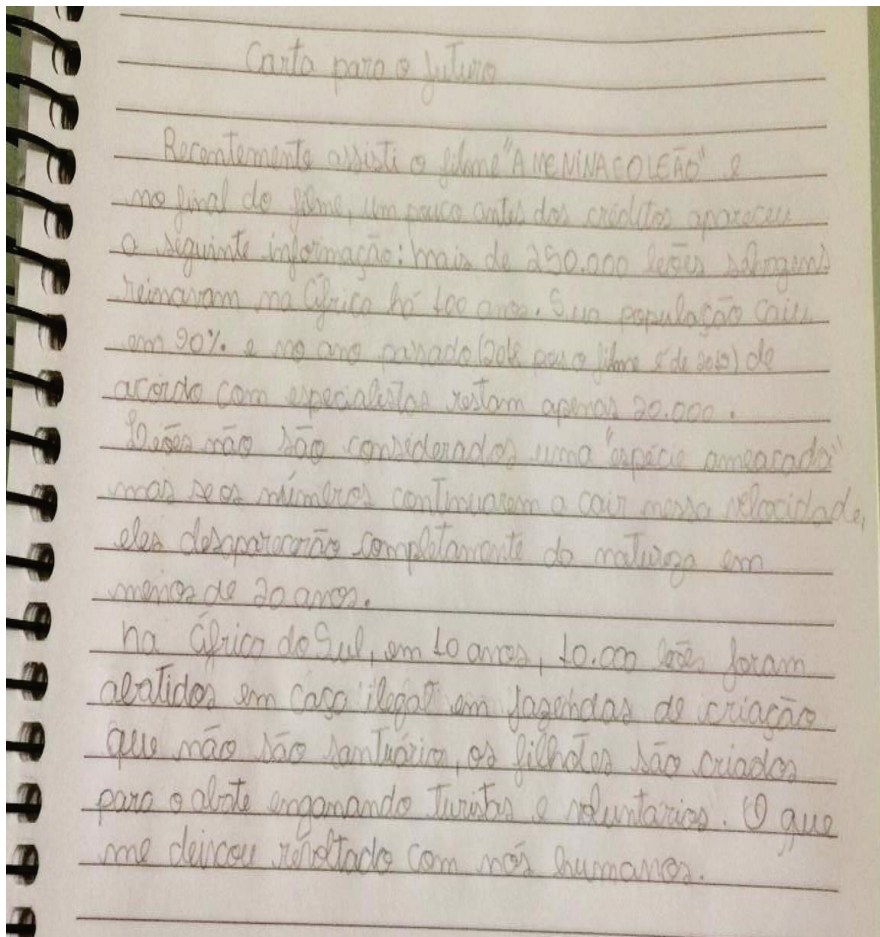 Carta para o futuro
Recentemente assisti o filme "A MENINA E O LEÃO" e
no final do filme, um pouco antes dos créditos apareceu
a seguinte informação: mais de 250.000 leões selvagens
reinavam na África há 100 anos. Sua população caiu
em 90% e no ano passado (2018 pois o filme é de 2019) de
acordo com especialistas restam apenas 20.000.
Leões não são considerados uma "espécie ameaçada"
mas se os números continuarem a cair nessa velocidade,
eles desaparecerão completamente da natureza em
menos de 20 anos.
na África do Sul, em 10 anos, 10.000 leões foram
abatidos em caça ilegal em fazendas de criação
que não são santuários, os filhotes são criados
para o abate enganando turistas e voluntarios. O que
me deixou revoltado com nós humanos.